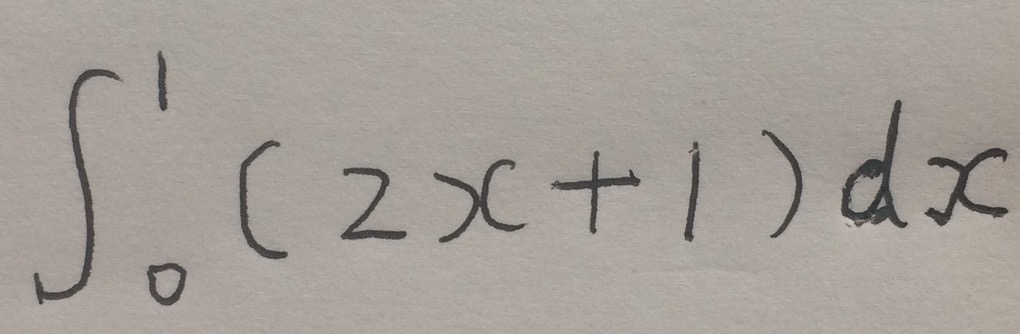 ∫₀¹ (2x+1) dx